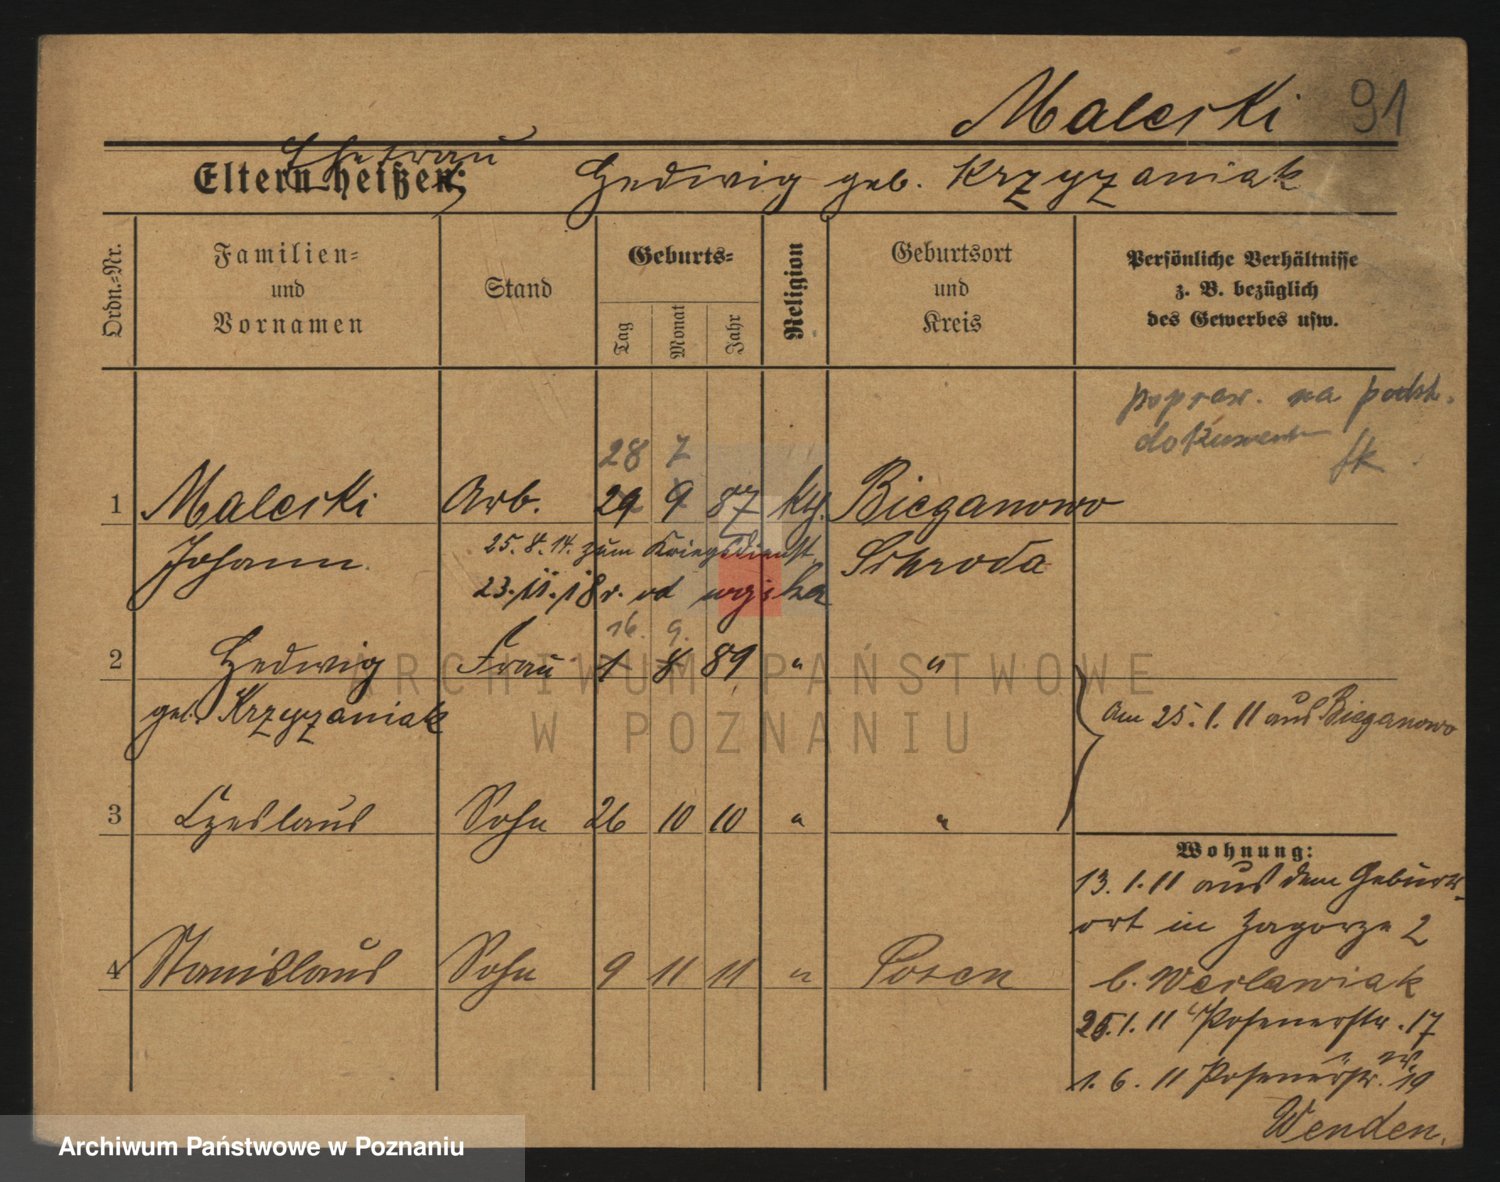 Maleski 91
Ehefrau
Eltern heißen: Hedwig geb. Krzyzaniak
Ordn.-Nr.
Familien-
und
Vornamen
Stand
Geburts-
Tag
Monat
Jahr
Religion
Geburtsort
und
Kreis
Persönliche Verhältnisse
z. B. bezüglich
des Gewerbes usw.
popraw. na podst.
dokument
28 7
1 Maleski Arb. 29 9 87 kth. Bieganowo
Johann. 25. 8. 14. zum Kriegsdienst. Schroda
23.11.18 r. od wojska
16. 9.
2 Hedwig Frau 1 8 89 " "
geb. Krzyzaniak
Am 25. 1. 11 aus Bieganowo
3 Czeslaus Sohn 26 10 10 " "
Wohnung:
13. 1. 11 aus dem Geburts-
ort in Zagorze 2
4 Stanislaus Sohn 9 11 11 " Posen
b. Weslawiak
25. 1. 11 Posenerstr. 17
1. 6. 11 Posenerstr. 19
Wenden.
ARCHIWUM PAŃSTWOWE
W POZNANIU
Archiwum Państwowe w Poznaniu